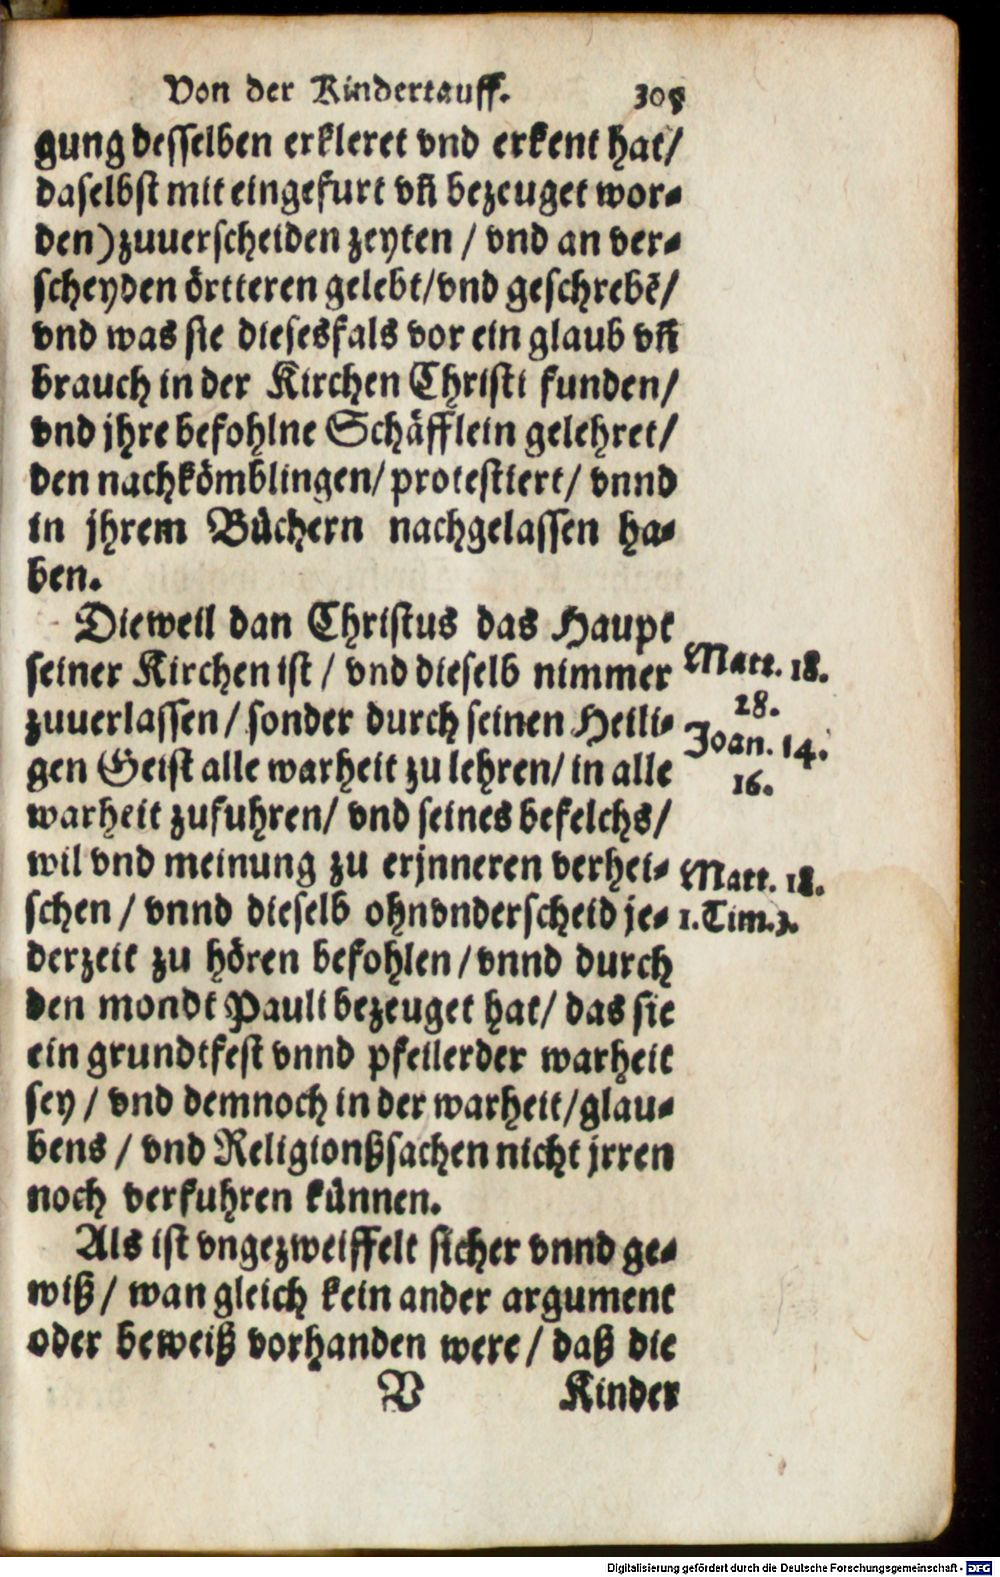 Von der Kindertauff. 305
gung desselben erkleret vnd erkent hat/
daselbst mit eingefurt vñ bezeuget wor-
den) zuuerscheiden zeyten / vnd an ver-
scheyden örtteren gelebt/vnd geschrebē/
vnd was sie diesesfals vor ein glaub vñ
brauch in der Kirchen Christi funden/
vnd jhre befohlne Schäfflein gelehret/
den nachkömblingen/ protestiert/ vnnd
in jhrem Büchern nachgelassen ha-
ben.
Dieweil dan Christus das Haupt
seiner Kirchen ist / vnd dieselb nimmer
zuuerlassen / sonder durch seinen Heili-
gen Geist alle warheit zu lehren/ in alle
warheit zufuhren/ vnd seines befelchs/
wil vnd meinung zu erjnneren verhei-
schen / vnnd dieselb ohnvnderscheid je-
derzeit zu hören befohlen / vnnd durch
den mondt Pauli bezeuget hat/ das sie
ein grundtfest vnnd pfeilerder warheit
sey / vnd demnoch in der warheit/glau-
bens / vnd Religionßsachen nicht jrren
noch verfuhren künnen.
Als ist vngezweiffelt sicher vnnd ge-
wiß / wan gleich kein ander argument
oder beweiß vorhanden were / daß die
V Kinder
Matt. 18.
28.
Joan. 14.
16.
Matt. 18.
1. Tim. 3.
Digitalisierung gefördert durch die Deutsche Forschungsgemeinschaft - DFG